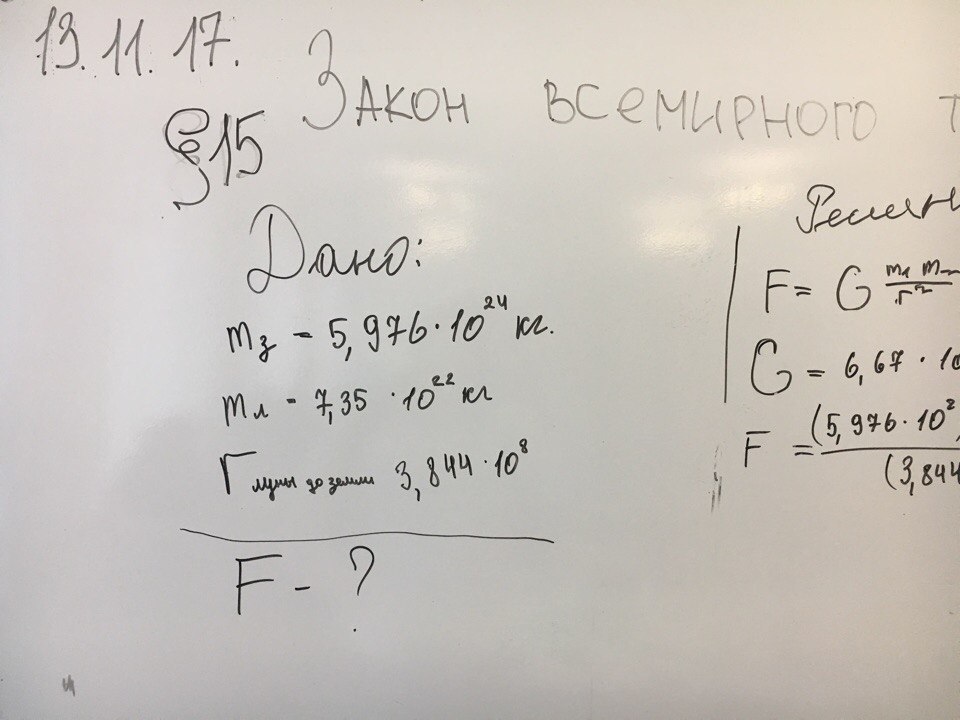 13.11.17.
Закон всемирного т
§15
Дано:
mз = 5,976·10²⁴ кг.
mл = 7,35 ·10²² кг
r луны до земли 3,844·10⁸
F - ?
Решен
F = G m₁ m / r²
G = 6,67 · 10
F = (5,976·10² / (3,844